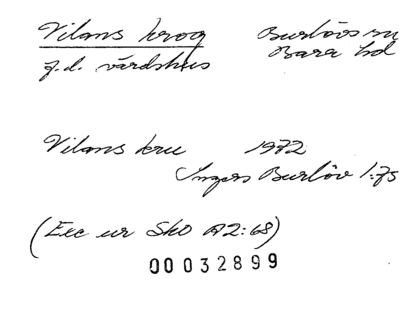 Vilans krog Burlövs sn
f.d. värdshus Bara hd
Vilans kru 1972
Ingers Burlöv 1:75
(Exc ur SkO A2:68)
00032899